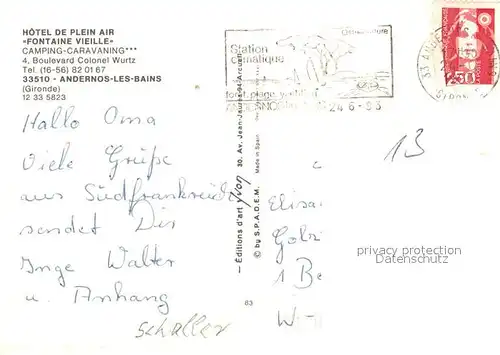 HÔTEL DE PLEIN AIR
«FONTAINE VIEILLE»
CAMPING-CARAVANING***
4, Boulevard Colonel Wurtz
Tel. (16-56) 82 01 67
33510 - ANDERNOS-LES-BAINS
(Gironde)
12 33 5823
Hallo Oma
Viele Grüße
aus Südfrankreich
sendet Dir
Inge Walter
u. Anhang
Schaller
— Éditions d'art Yvon 30, Av. Jean-Jaurès 94-Arcueil
© by S.P.A.D.E.M. Made in Spain
83
Station
climatique
forêt plage
24-6-93
2,50
13
Elisa
1 Be
W-
privacy protection
Datenschutz